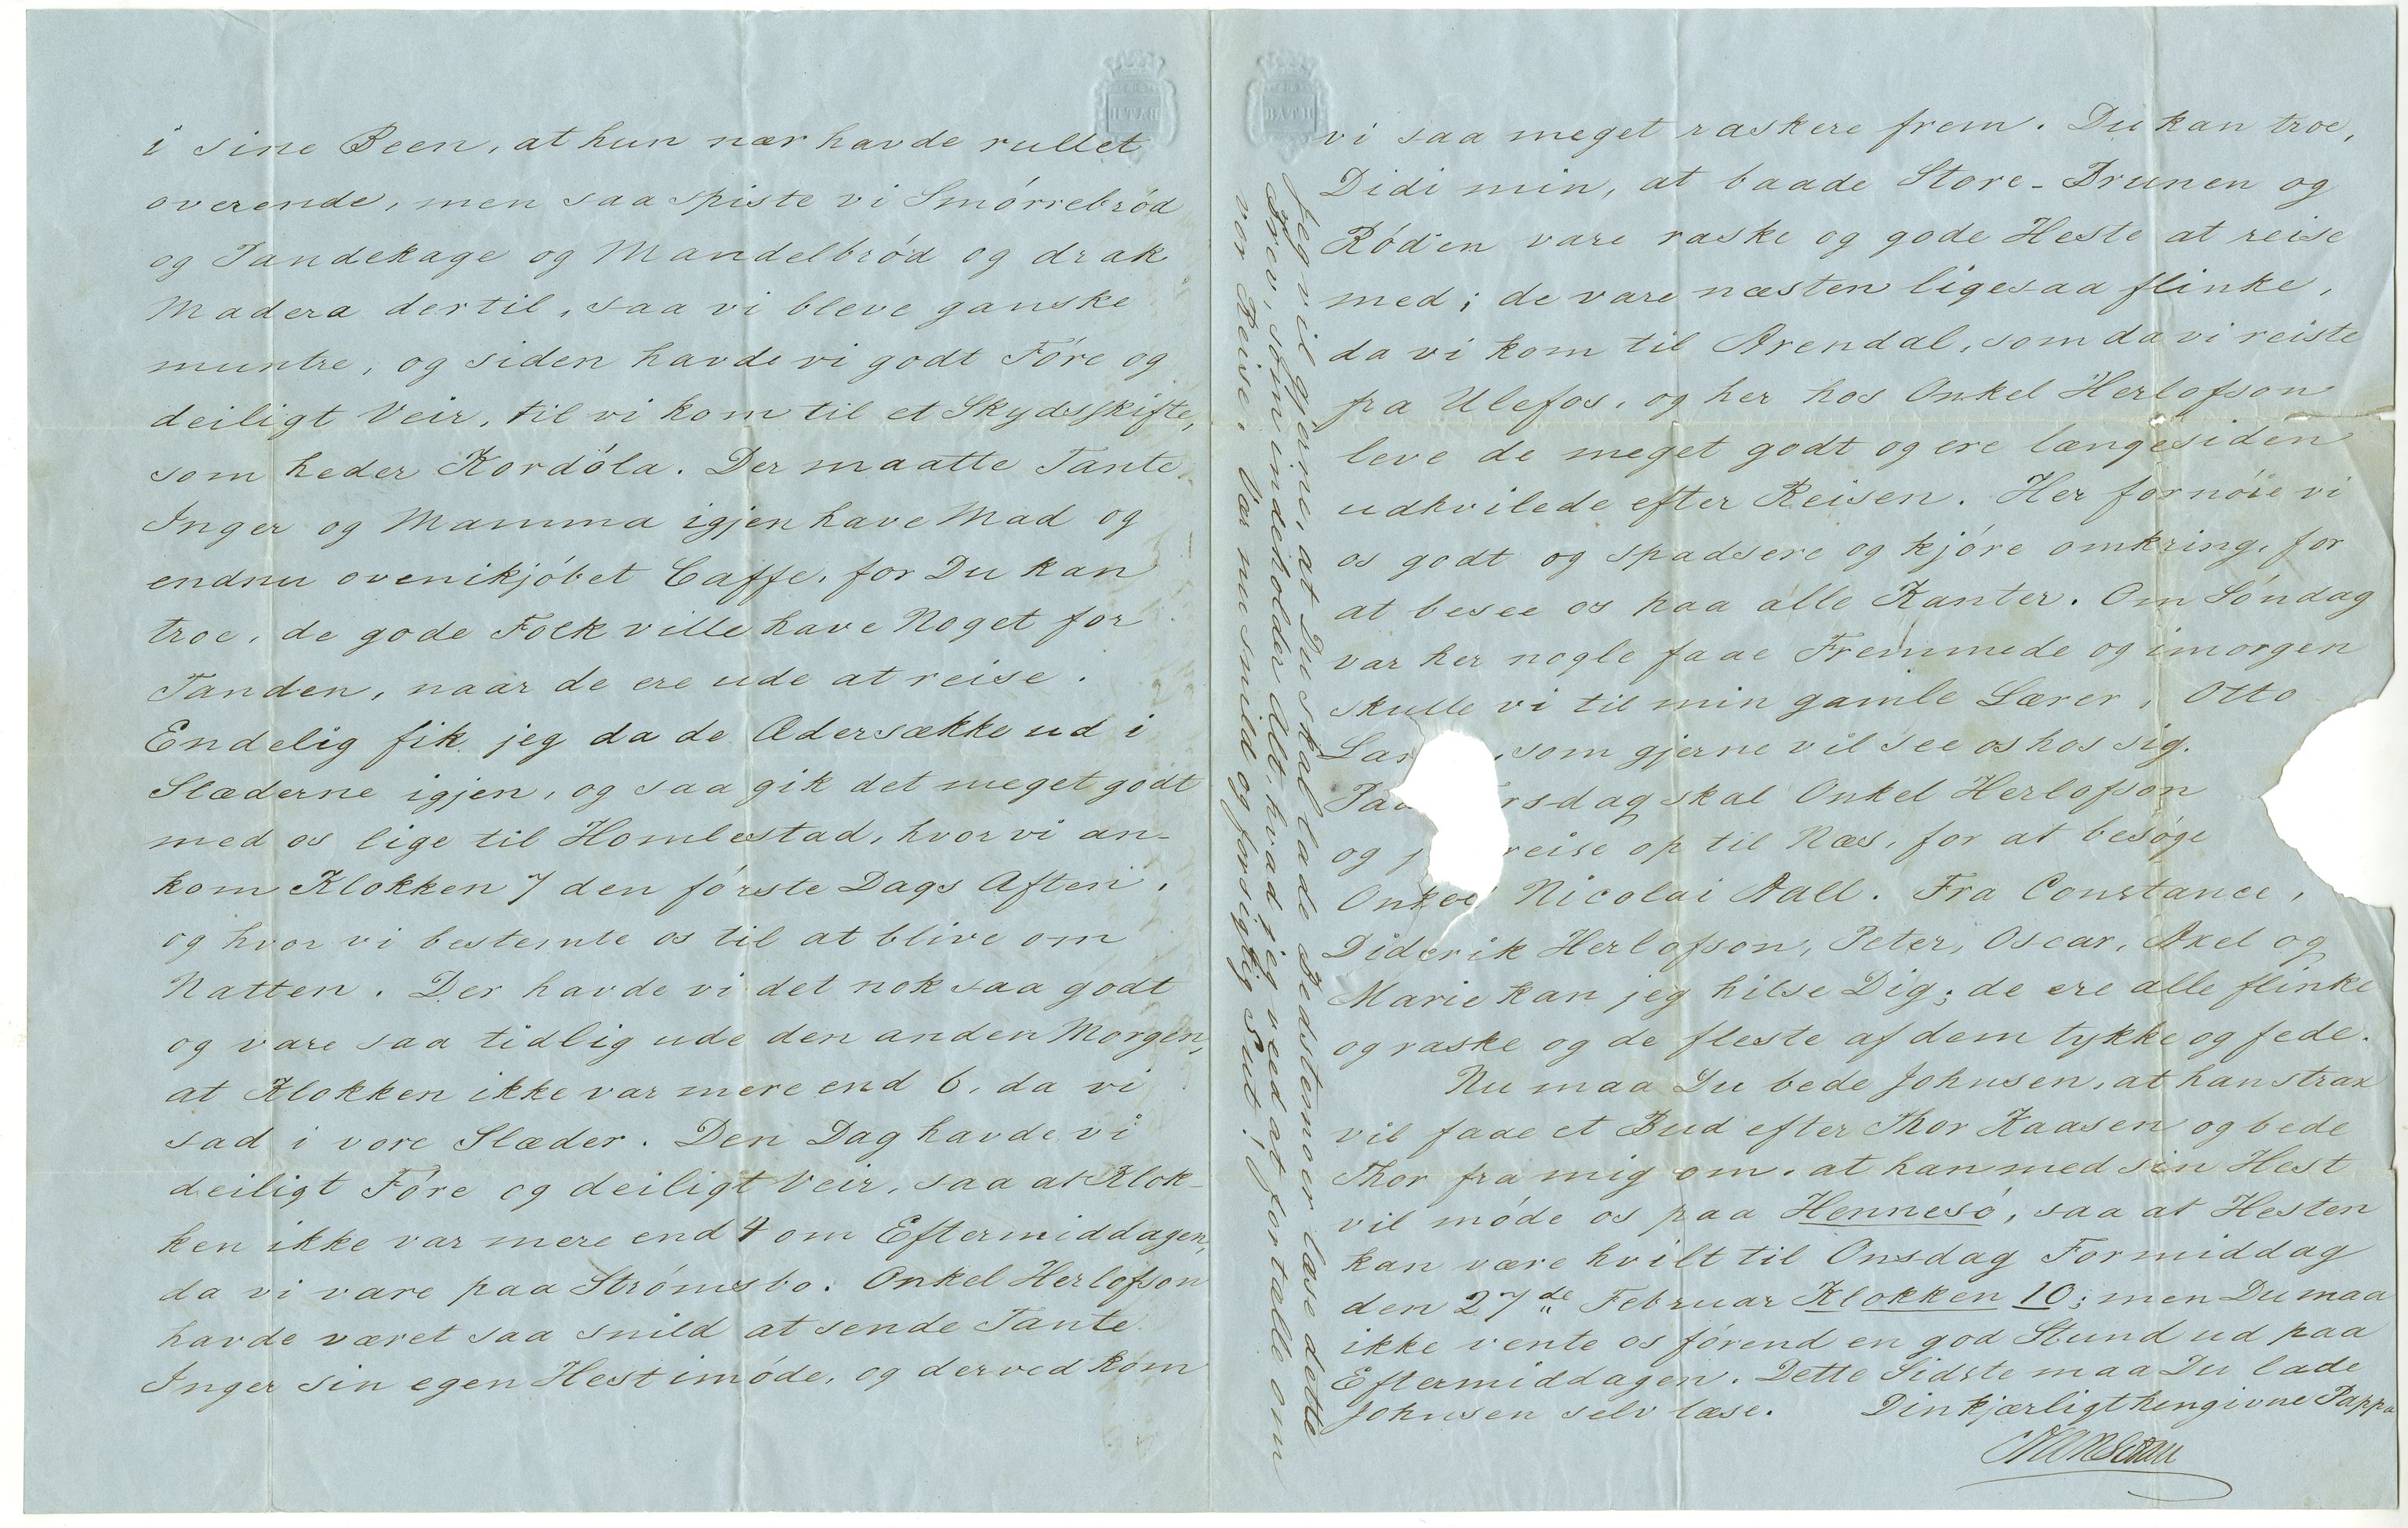 i sine Been, at hun nær havde rullet
overende, men saa spiste vi Smórrebród
og Pandekage og Mandelbród og drak
Madera dertil, saa vi bleve ganske
muntre, og siden havde vi godt Fóre og
deiligt Veir, til vi kom til et Skydsskifte,
som heder Kordóla. Der maatte Tante
Inger og Mamma igjen have Mad og
endnu ovenikjóbet Caffe, for Du kan
troe, de gode Folk ville have Noget for
Tanden, naar de ere ude at reise.
Endelig fik jeg da de Ædersække ud i
Slæderne igjen, og saa gik det meget godt
med os lige til Homlestad, hvor vi an-
kom Klokken 7 den fórste Dags Aften,
og hvor vi bestemte os til at blive om
Natten. Der havde vi det nok saa godt
og vare saa tidlig ude den anden Morgen,
at Klokken ikke var mere end 6, da vi
sad i vore Slæder. Den Dag havde vi
deiligt Fóre og deiligt Veir, saa at Klok-
ken ikke var mere end 4 om Eftermiddagen,
da vi vare paa Strómsbo. Onkel Herlofson
havde været saa snild at sende Tante
Inger sin egen Hest imóde, og derved kom
vi saa meget raskere frem. Du kan troe,
Didi min, at baade Store-Brunen og
Róden vare raske og gode Heste at reise
med; de vare næsten ligesaa flinke,
da vi kom til Arendal, som da vi reiste
fra Ulefos, og her hos Onkel Herlofson
leve de meget godt og ere længesiden
udhvilede efter Reisen. Her fornóie vi
os godt og spadsere og kjóre omkring, for
at besee os paa alle Kanter. Om Sóndag
var her nogle faae Fremmede og imorgen
skulle vi til min gamle Lærer, Otto
Lar , som gjerne vil see os hos sig.
Paa rsdag skal Onkel Herlofson
og j reise op til Næs, for at besøge
Onkel Nicolai Aall. Fra Constance,
Diderik Herlofson, Peter, Oscar, Axel og
Marie kan jeg hilse Dig; de ere alle flinke
og raske og de fleste af dem tykke og fede.
Nu maa Du bede Johnsen, at han strax
vil faae et Bud efter Thor Kaasen og bede
Thor fra mig om, at han med sin Hest
vil móde os paa Hennesó, saa at Hesten
kan være hvilt til Onsdag Formiddag
den 27de Februar Klokken 10; men Du maa
ikke vente os fórend en god Stund ud paa
Eftermiddagen. Dette Sidste maa Du lade
Johnsen selv læse. Din kjærligt hengivne Pappa
Jeg vil gjerne, at Du skal lade Bedstemoer læse dette
Brev, som indeholder Alt, hvad jeg veed at fortælle om
vor Reise. Vær nu snild og forsigtig Gut!